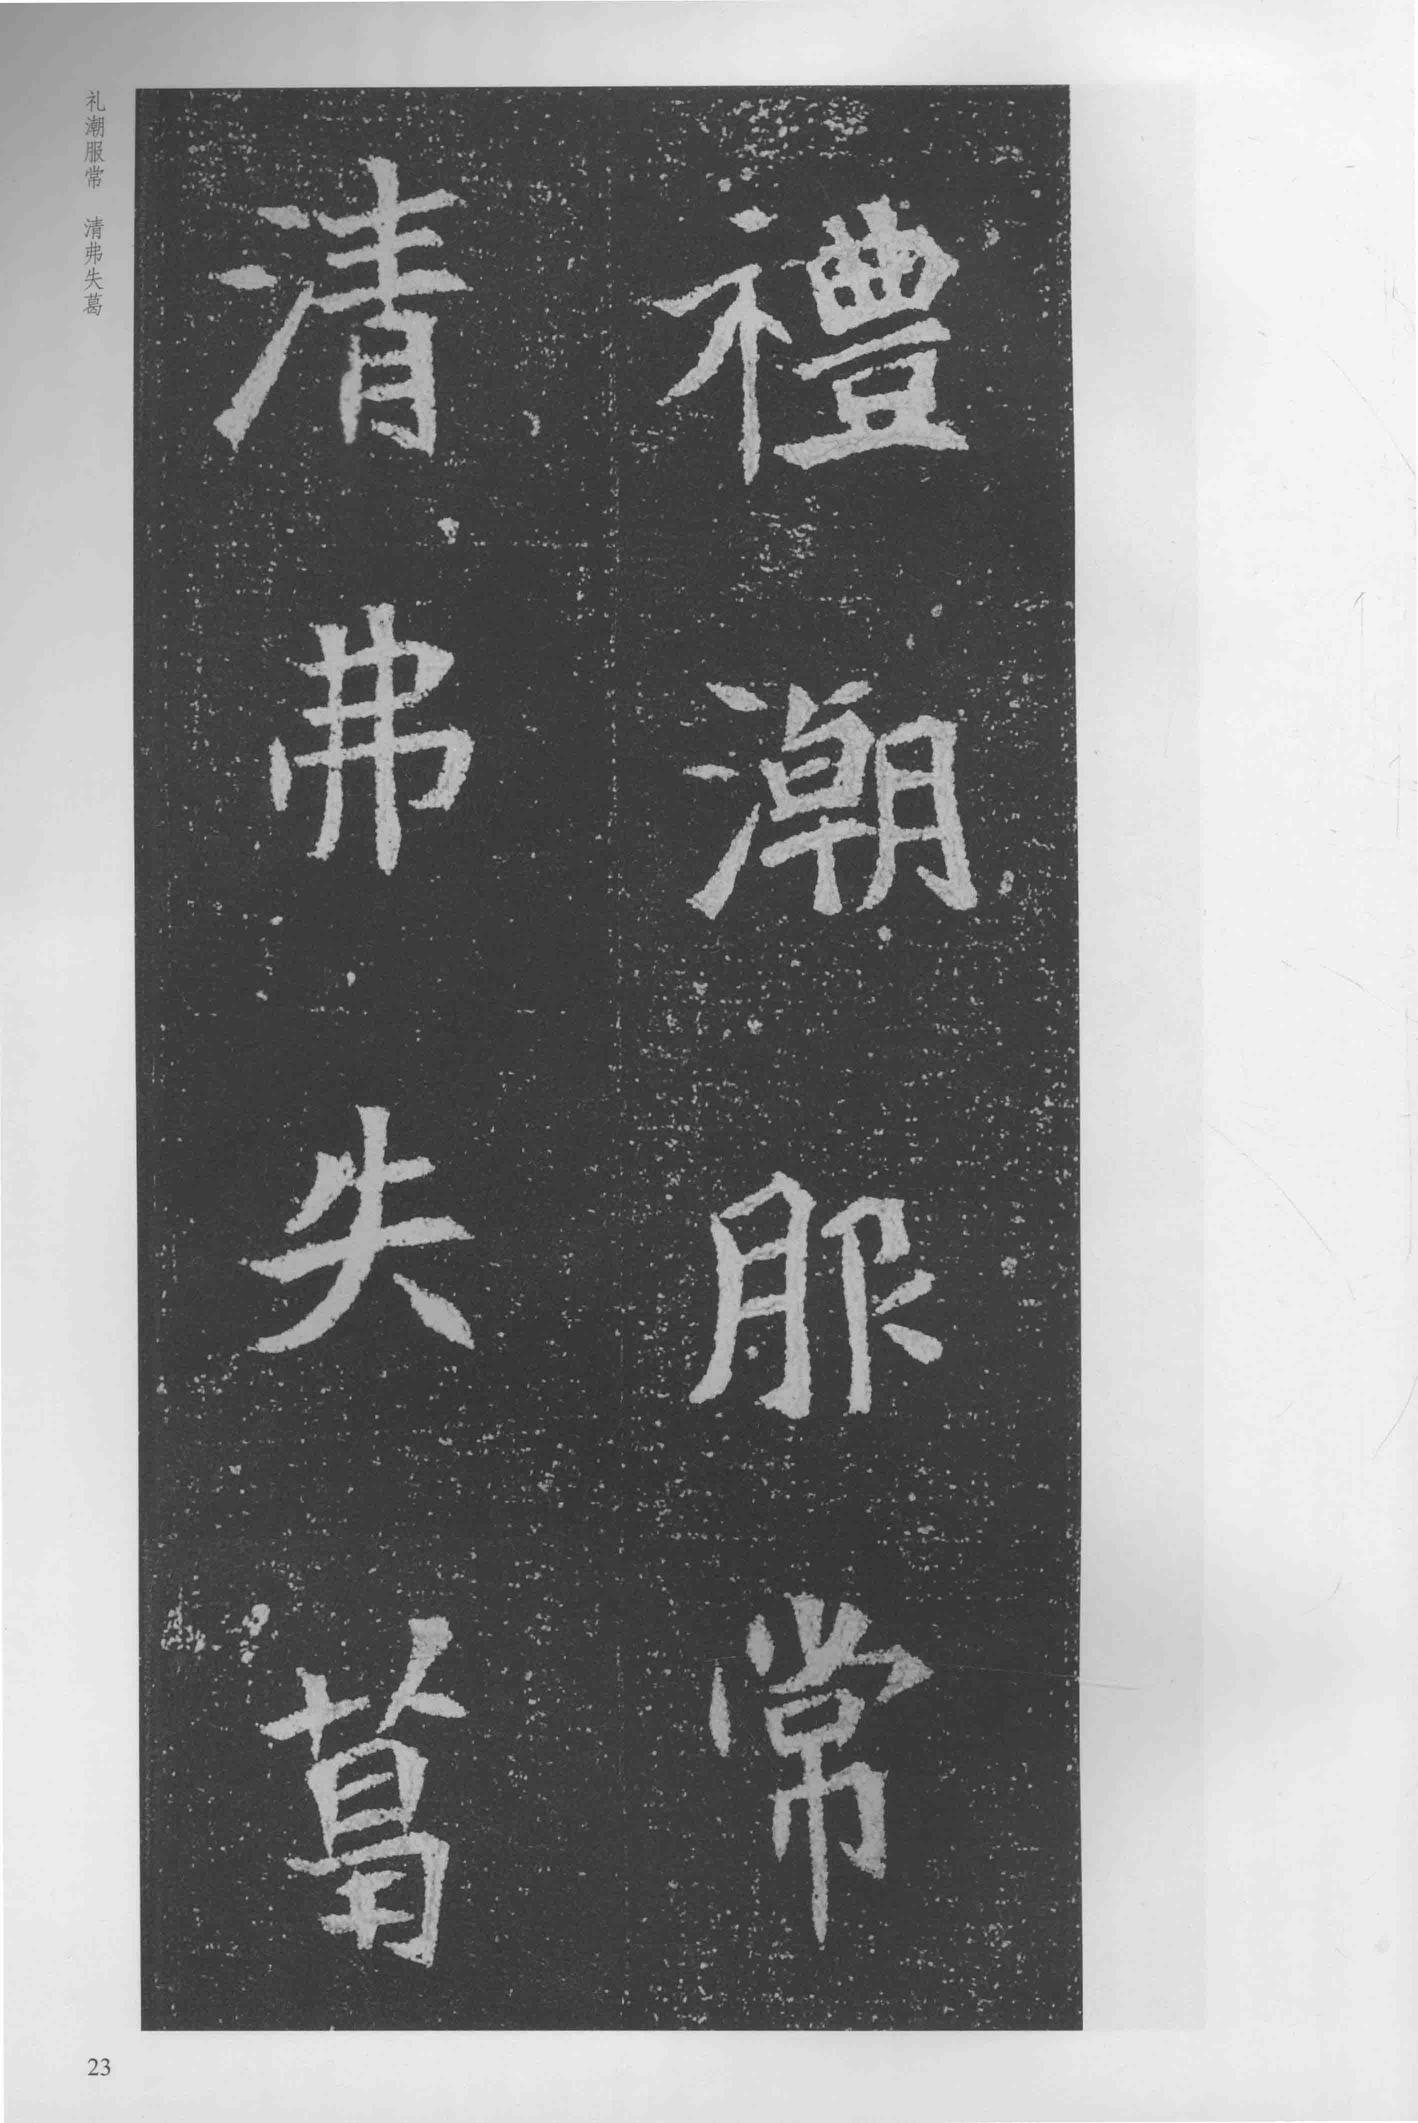 禮潮服常
清弗失葛
礼潮服常 清弗失葛
23